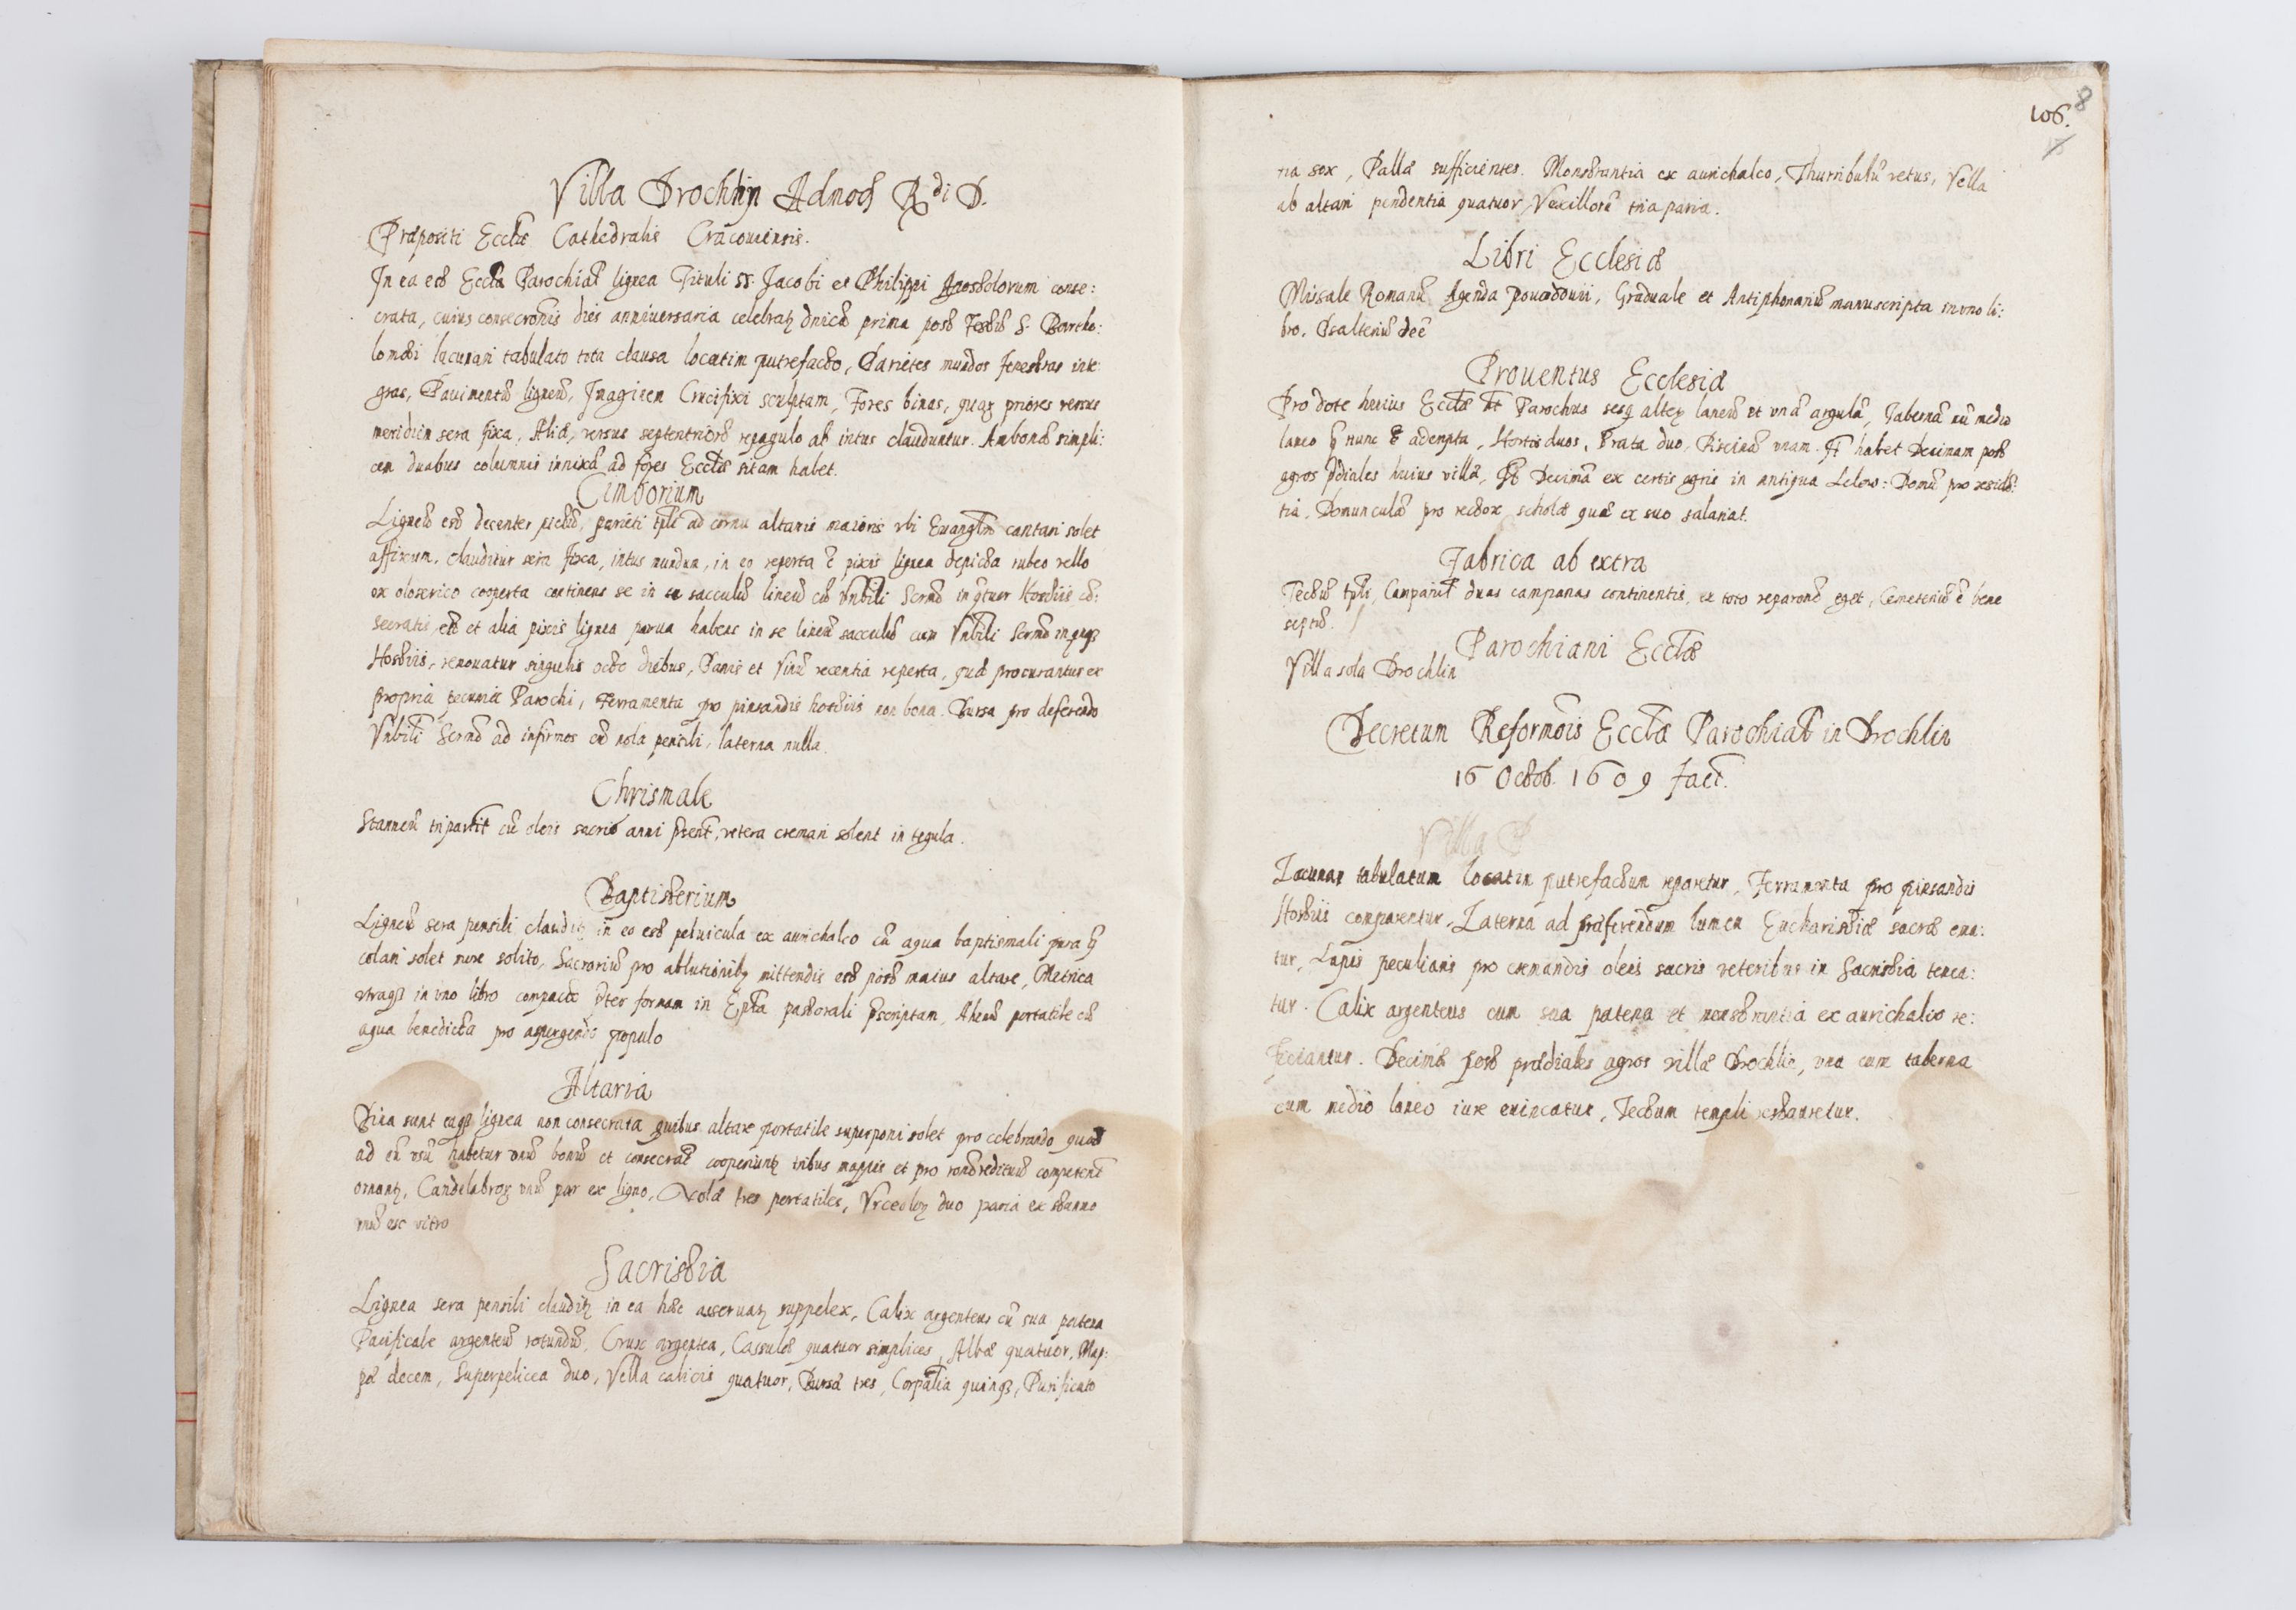 Villa Drochlyn Admod Rdi D.
Præpositi Ecclæ Cathedralis Cracouiensis.
In ea est Eccla Parochial lignea Tituli SS. Jacobi et Philippi Apostolorum conse:
crata, cuius consecronis dies anniuersaria celebratz dnica prima post Festũ S. Bartho:
lomæi lacunari tabulato tota clausa locatim putrefacto, Parietes mundos fenestras inte
gras, Pauimentũ ligneũ, Imaginem Crucifixi sculptam, Fores binas, quaz priores versus
meridiem sera fixa, Aliæ, versus septentrionẽ repagulo ab intus clauduntur. Ambonẽ simpli:
cem duabus columnis innixã ad fores Ecclæ sitam habet.
Cimborium
Ligneũ est decenter pictũ, parieti tpli ad cornu altaris maioris vbi Euanglm cantari solet
affixum. clauditur sera fixa, intus mundum, in eo reperta ẽ pixis lignea depicta rubeo vello
ex oloserico cooperta continens se in se sacculũ lineũ cũ Vnbili Scrmo in qtuor Hostiis cõ:
secratis, est et alia pixis lignea parua habens in se lineũ sacculũ cum Vnbili Scrmo in
Hostiis, renouatur singulis octo diebus, Panis et Vinũ recentia reperta, quæ procurantur ex
propria pecunia Parochi, Ferramenta pro pinsandis hostiis non bona. Bursa pro deferendo
Vnbili Scrmo ad infirmos cũ nola pensili, laterna nulla.
Chrismale
Stanneũ tripartit cũ oleis sacris anni psent, vetera cremari solent in tegula.
Baptisterium
Ligneũ sera pensili clauditz in eo est peluicula ex aurichalco cũ aqua baptismali pura q
colari solet more solito, Sacrariũ pro ablutionibz mittendis est post maius altare, Metrica
vtraqz in vno libro compacta pter formam in Epla pastorali pscriptam, Aheneũ portatile cũ
aqua benedicta pro aspergendo populo
Altaria
Bina sunt eaqz lignea non consecrata quibus altare portatile superponi solet pro celebrando quod
ad eũ vsũ habetur vnũ bonũ et consecrat cooperiuntz tribus mappis et pro rone redituũ competent
ornantz, Candelabroz vnũ par ex ligno, Nolæ tres portatiles, Vrceoloz duo paria ex stanno
vnũ ex vitro
Sacristia
Lignea sera pensili clauditz in ea hæc asseruatz suppelex, Calix argenteus cũ sua patena
Pacificale argenteũ rotundũ, Crux argentea, Cassulæ quatuor simplices, Albæ quatuor, Map:
pæ decem, Superpelicea duo, Vella calicis quatuor, Bursæ tres, Corpalia quinqz, Purificato
106. 8
ria sex, Pallæ sufficientes. Monstrantia ex aurichalco, Thurribulũ vetus, Vella
ab altari pendentia quatuor, Vexillorũ tria paria.
Libri Ecclesiæ
Missale Romanũ Agenda Pouodouii, Graduale et Antiphonariũ manuscripta in vno li:
bro. Psalteriũ deẽ
Prouentus Ecclesiæ
Pro dote huius Ecclæ ht Parochus sesq altez laneũ et vnã argulã, Tabernã cũ medio
laneo q nunc ẽ adempta, Hortos duos, Prata duo, Piscinã vnam. It habet Decimam post
agros pdiales huius villæ, It Decimã ex certis agris in antiqua Lelow: Domũ pro reside:
tia, Domunculã pro rectore scholæ quẽ ex suo salariat.
Fabrica ab extra
Tectũ tpli, Campanil duas campanas continentis, ex toto reparone eget, Cemeteriũ ẽ bene
septũ.
Parochiani Ecclæ
Villa sola Drochlin
Decretum Reformõis Ecclæ Parochial in Drochlin
16 Octob. 1609 Fact.
Villa D
Lacunar tabulatum locatim putrefactum reparetur, Ferramenta pro pinsandis
Hostiis comparentur, Laterna ad præferendum lumen Eucharistiæ sacræ ema:
tur, Lapis peculiaris pro cremandis oleis sacris veteribus in Sacristia tenea:
tur. Calix argenteus cum sua patena et monstrantia ex aurichalco re:
ficiantur. Decimæ post prædiales agros villæ Drochlin, vna cum taberna
cum medio laneo iure euincatur, Tectum templi restauretur.